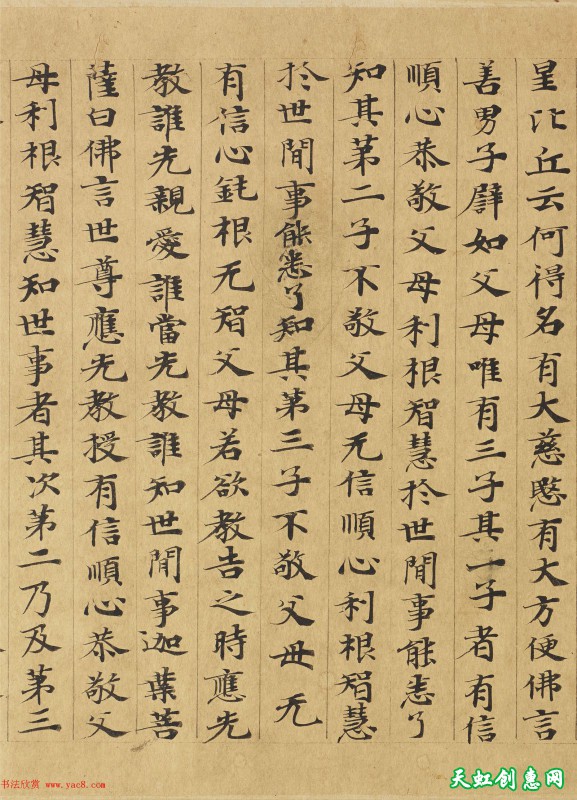 星比丘云何得名有大慈愍有大方便佛言
善男子譬如父母唯有三子其一子者有信
順心恭敬父母利根智慧於世間事能悉了
知其第二子不敬父母无信順心利根智慧
於世間事能悉了知其第三子不敬父母无
有信心鈍根无智父母若欲教告之時應先
教誰先親愛誰當先教誰知世間事迦葉菩
薩白佛言世尊應先教授有信順心恭敬父
母利根智慧知世事者其次第二乃及第三
书法欣赏 www.yac8.com
天虹创惠网